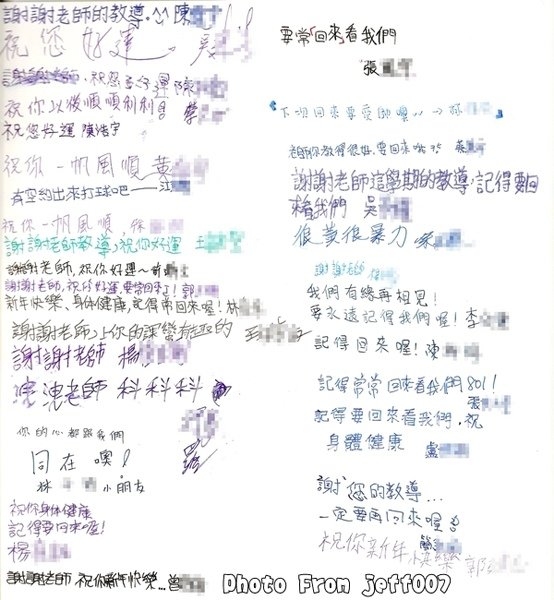 謝謝老師的教導.^^ 陳
祝您好運。吳
謝謝老師,祝您好運 陳
祝你以後順順利利 蔡
祝您好運 陳浩宇
祝你一帆風順 黃
有空約出來打球吧——江
祝你一帆風順, 徐
謝謝老師教導,祝你好運 王
謝謝老師,祝你好運~
謝謝老師,祝你好運,要常回來! 郭
新年快樂、身体健康,記得常回來喔! 林
謝謝老師,上你的課蠻有趣的 王
謝謝老師 楊
老師 科科科
你的心都跟我們
同在噢!
林 小朋友
祝你身体健康
記得要回來喔!
楊
謝謝老師 祝你新年快樂... 曾
要常「回來」看我們
張
下次回來要愛
你教得很好,要回來
謝謝老師這學期的教導,記得要回
來看我們 吳
很黃很暴力
謝謝老師
我們有緣再相見!
要永遠記得我們喔! 李
記得回來喔! 陳
記得常常回來看我們801!
張
記得要回來看我們,祝
身體健康 盧
謝 您的教導...
一定要再回來喔
祝你新年快樂 郭
Photo From jeff007